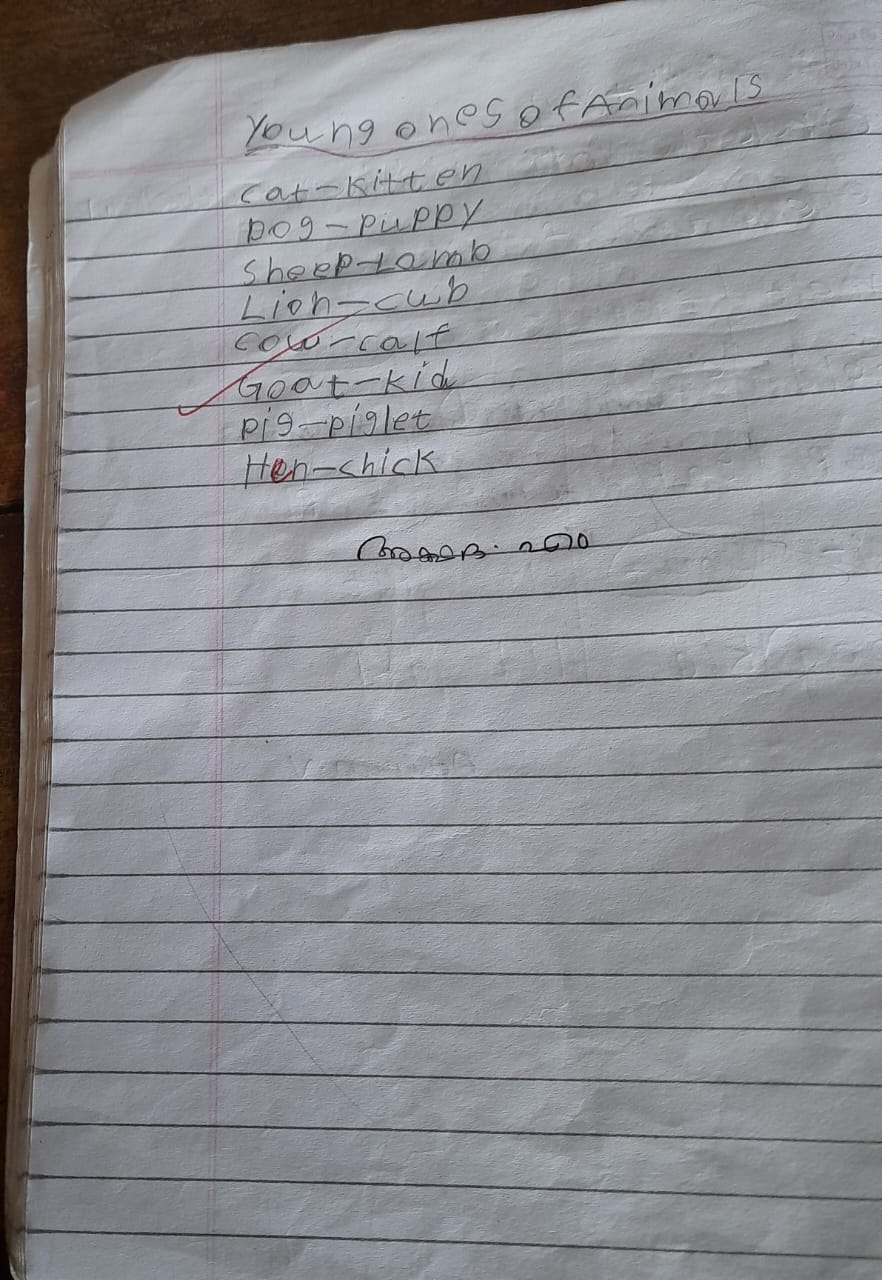 Young ones of Animals
Cat-Kitten
Dog-puppy
Sheep-Lamb
Lion-cub
Cow-calf
Goat-Kid
Pig-piglet
Hen-chick